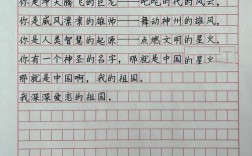 你是冲天腾飞的巨龙——叱咤时代的风云，
你是威风凛凛的雄师——舞动神州的雄风，
你是人类智慧的起源——点燃文明的星火。
你有一个神圣的名字，那就是中国的星火，
那就是中国啊，我的祖国。
我深深爱恋的祖国。